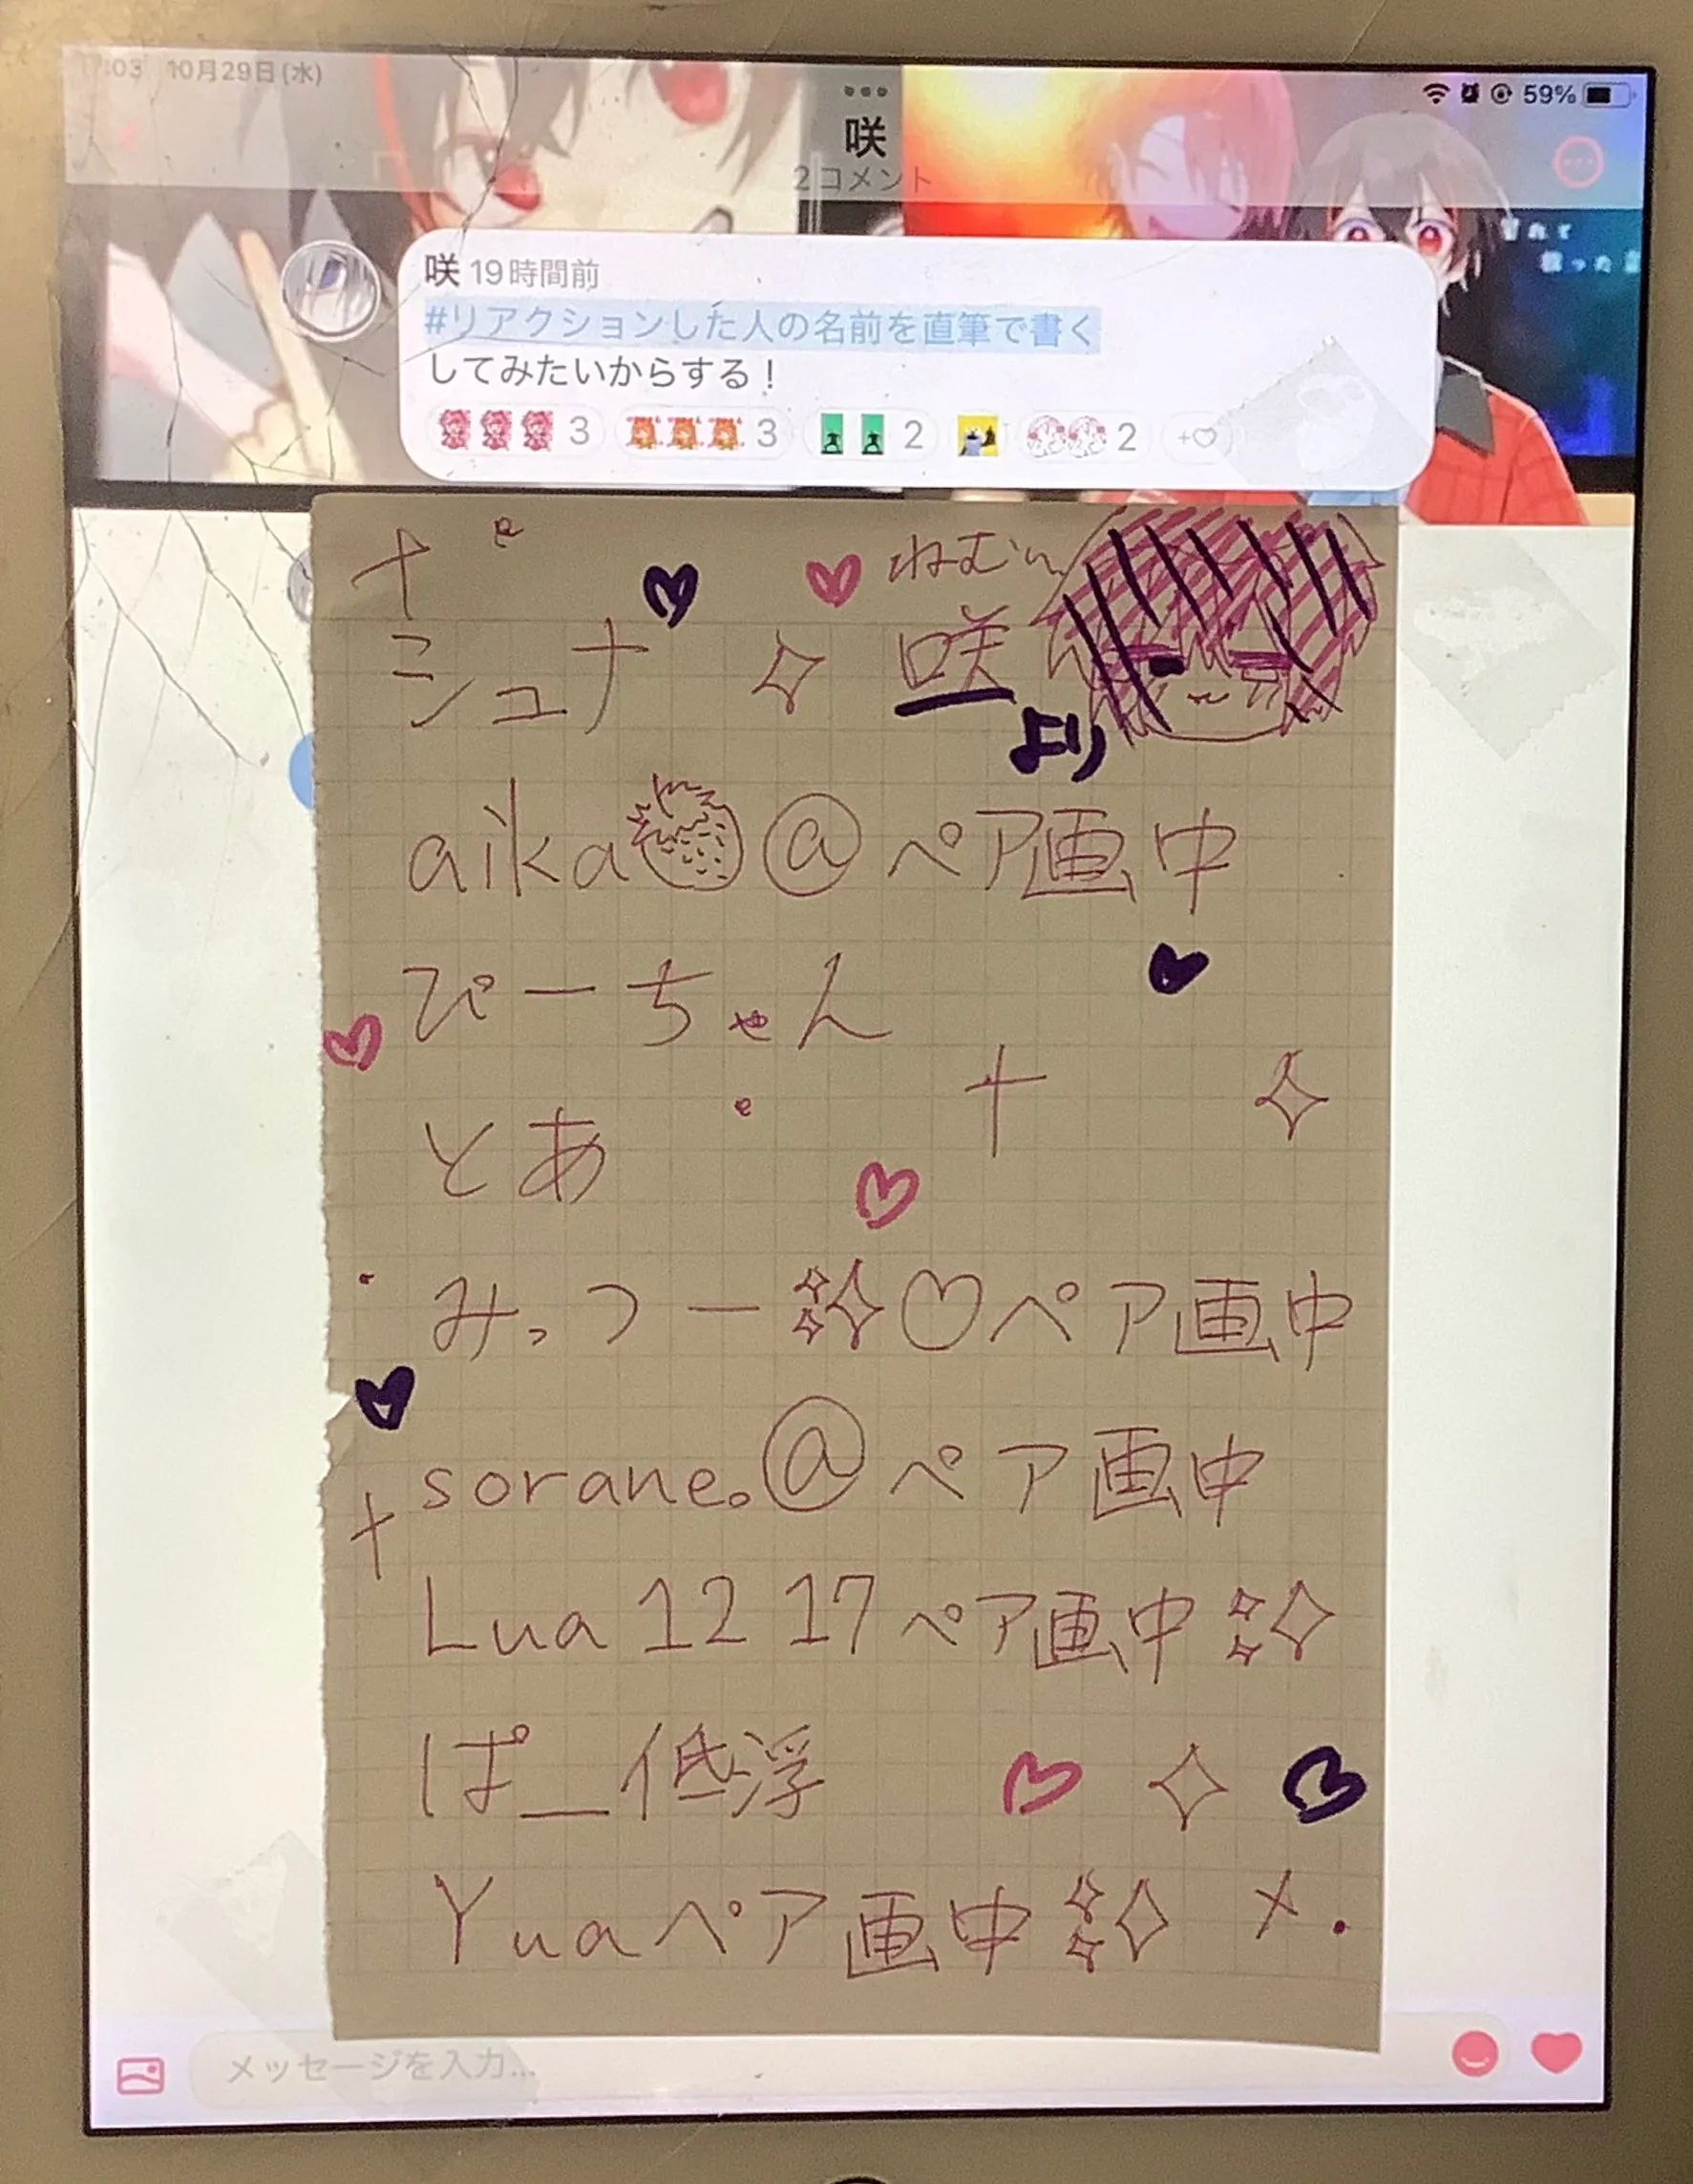 10月29日(水)
59%
咲
2コメント
咲 19時間前
#リアクションした人の名前を直筆で書く
してみたいからする！
3 3 2 2
ねむい
シュナ
咲
より
aika@ペア画中
ぴーちゃん
とあ
みっつー♡ペア画中
sorane。@ペア画中
Lua 12 17 ペア画中
ぱ_低浮
Yuaペア画中
メッセージを入力...